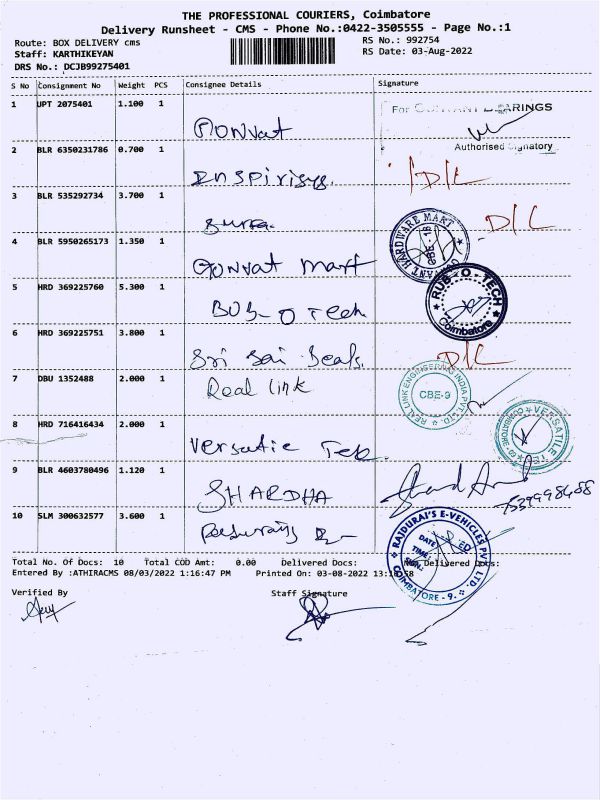 THE PROFESSIONAL COURIERS, Coimbatore
Delivery Runsheet - CMS - Phone No.:0422-3505555 - Page No.:1
Route: BOX DELIVERY cms
RS No.: 992754
Staff: KARTHIKEYAN
RS Date: 03-Aug-2022
DRS No.: DCJB99275401
S No Consignment No Weight PCS Consignee Details Signature
1 UPT 2075401 1.100 1
For BEARINGS
Authorised Signatory
2 BLR 6350231786 0.700 1
Inspirisys.
D/L
3 BLR 535292734 3.700 1
D/L
4 BLR 5950265173 1.350 1
HARDWARE MART
CBE-18
5 HRD 369225760 5.300 1
RUB-O-TECH
Coimbatore
6 HRD 369225751 3.800 1
Sri Sai Seals.
D/L
7 DBU 1352488 2.000 1
Real link
REAL LINK ENGINEERING INDIA PVT LTD
CBE-9
8 HRD 716416434 2.000 1
VERSATILE
COIMBATORE
9 BLR 4603780496 1.120 1
SHARDHA
10 SLM 300632577 3.600 1
RAJDURAI'S E-VEHICLES PVT. LTD.
DATE:
TIME:
COIMBATORE - 9.
Total No. Of Docs: 10 Total COD Amt: 0.00 Delivered Docs: Delivered Docs:
Entered By :ATHIRACMS 08/03/2022 1:16:47 PM Printed On: 03-08-2022
Verified By
Staff Signature